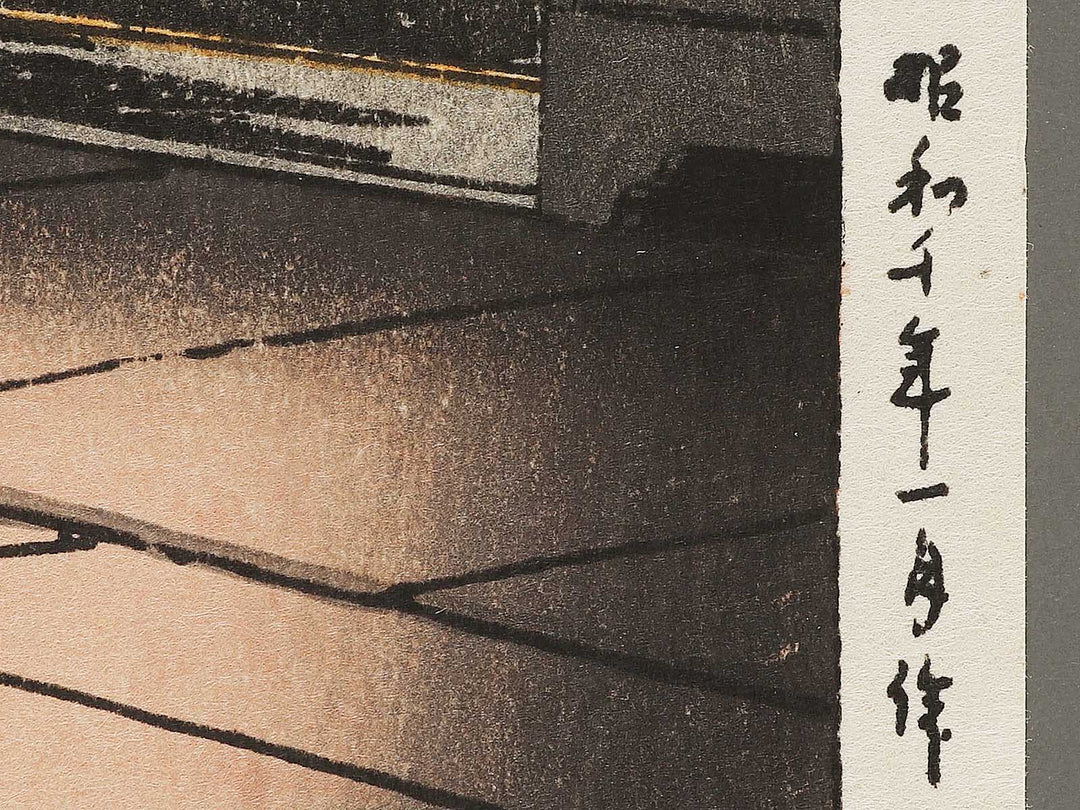 昭和十年一月作